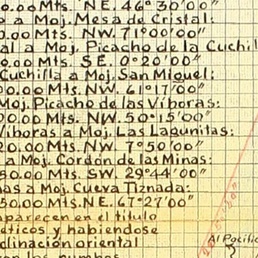 0.00 Mts. N.E. 46°30'00"
a Moj. Mesa de Cristal:
0.00 Mts. NW. 71°00'00"
al a Moj. Picacho de la Cuchil
00 Mts. S.E. 0°20'00"
Cuchilla a Moj. San Miguel:
.00 Mts. N.W. 61°17'00"
Moj. Picacho de las Víboras:
0.00 Mts. NW. 50°15'00"
Víboras a Moj. Las Lagunitas:
.00 Mts. NW. 7°50'00"
a Moj. Cordón de las Minas:
50.00 Mts. SW. 29°44'00"
nas a Moj. Cueva Tiznada:
50.00 Mts. N.E. 67°27'00"
aparecen en el título
éticos y habiendose
clinación oriental
Al Pacífic